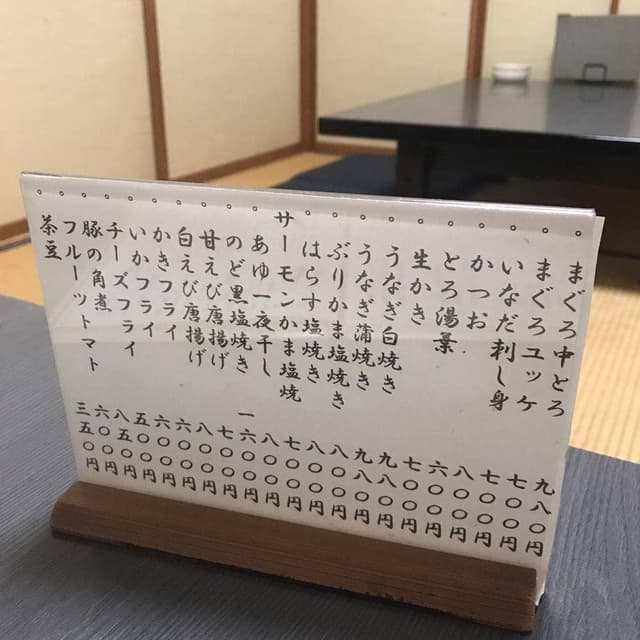 まぐろ中とろ 九八〇円
まぐろユッケ 七〇〇円
いなだ刺し身 七〇〇円
かつお 八〇〇円
とろ湯葉 六〇〇円
生かき 七〇〇円
うなぎ白焼き 九八〇円
うなぎ蒲焼き 九八〇円
ぶりかま塩焼き 八〇〇円
はらす塩焼き 八〇〇円
サーモンかま塩焼 七〇〇円
あゆ一夜干し 八〇〇円
のど黒塩焼き 一六〇〇円
甘えび唐揚げ 七〇〇円
白えび唐揚げ 八〇〇円
かきフライ 六〇〇円
いかフライ 六〇〇円
チーズフライ 五〇〇円
豚の角煮 八五〇円
フルーツトマト 六〇〇円
茶豆 三五〇円